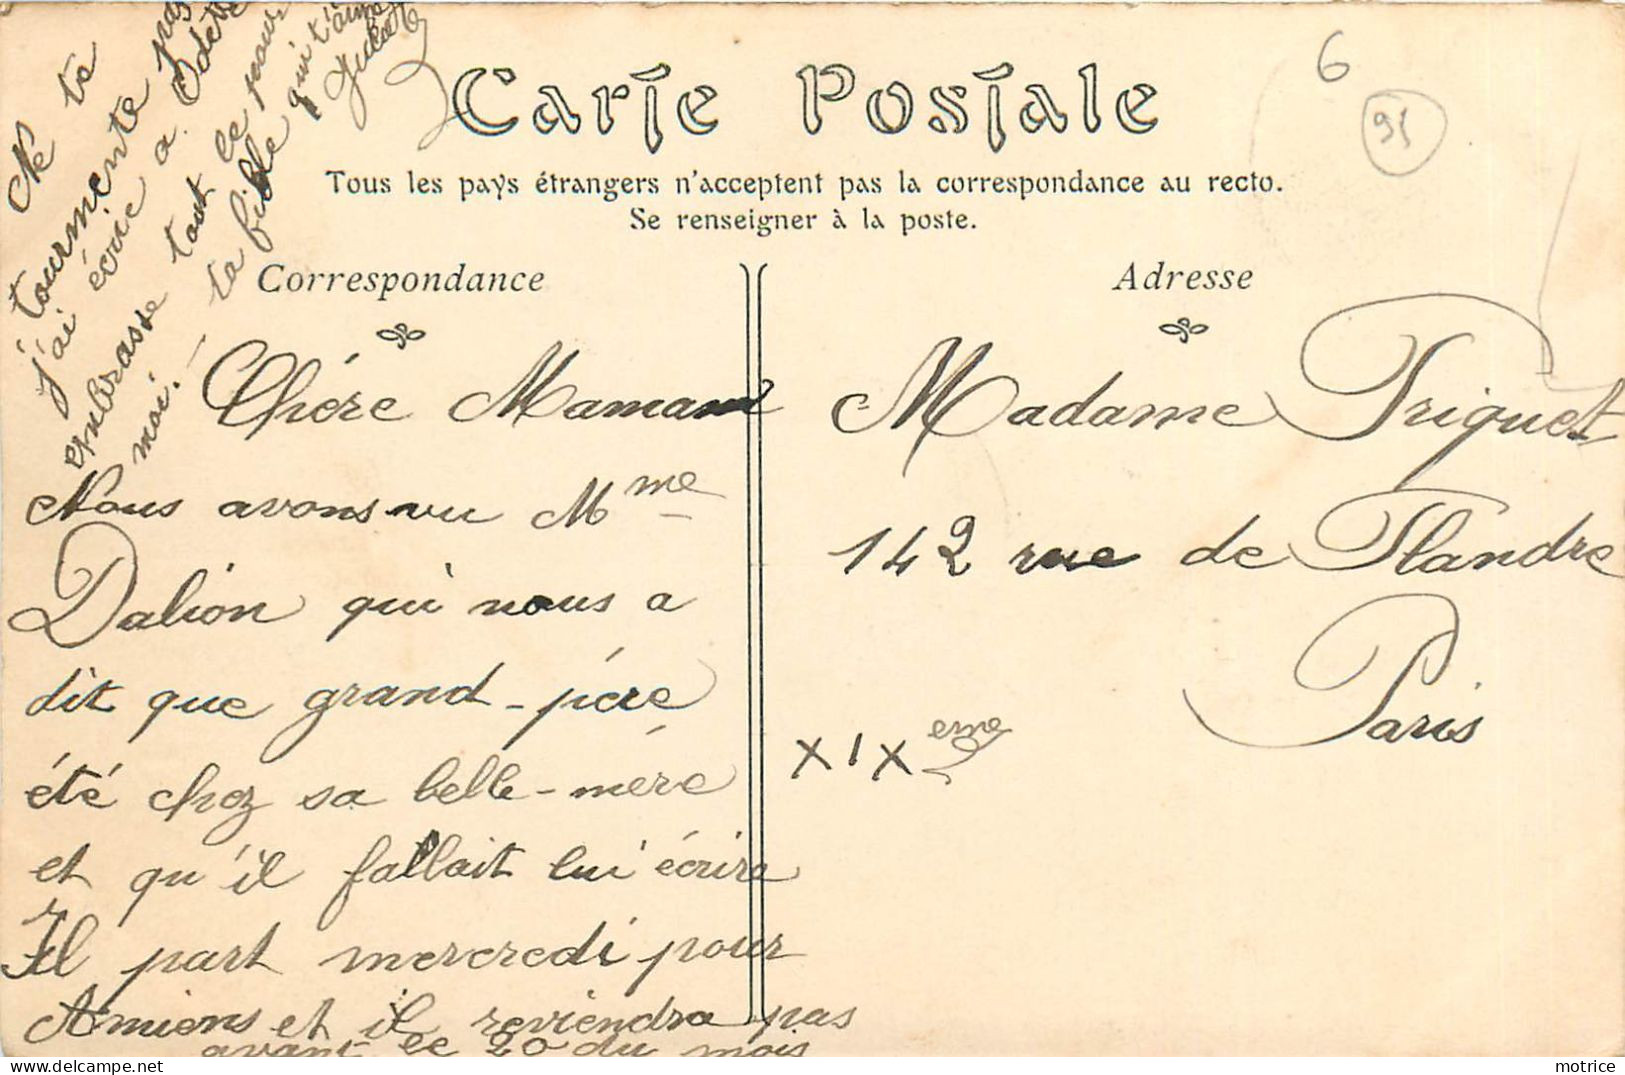 Carte Postale
Tous les pays étrangers n'acceptent pas la correspondance au recto.
Se renseigner à la poste.
Correspondance
Chére Maman
Nous avons vu Mme
Dalion qui nous a
dit que grand-pére
été chez sa belle-mére
et qu'il fallait lui écrire
Il part mercredi pour
Amiens et il reviendra pas
avant le 20 du mois
Ne te
tourmente pas
j'ai écrie a Odette
embrasse tout le
moi. - ta fille qui t'aime
Adresse
Madame Triquet
142 rue de Flandre
Paris
XIXeme
6
95
motrice